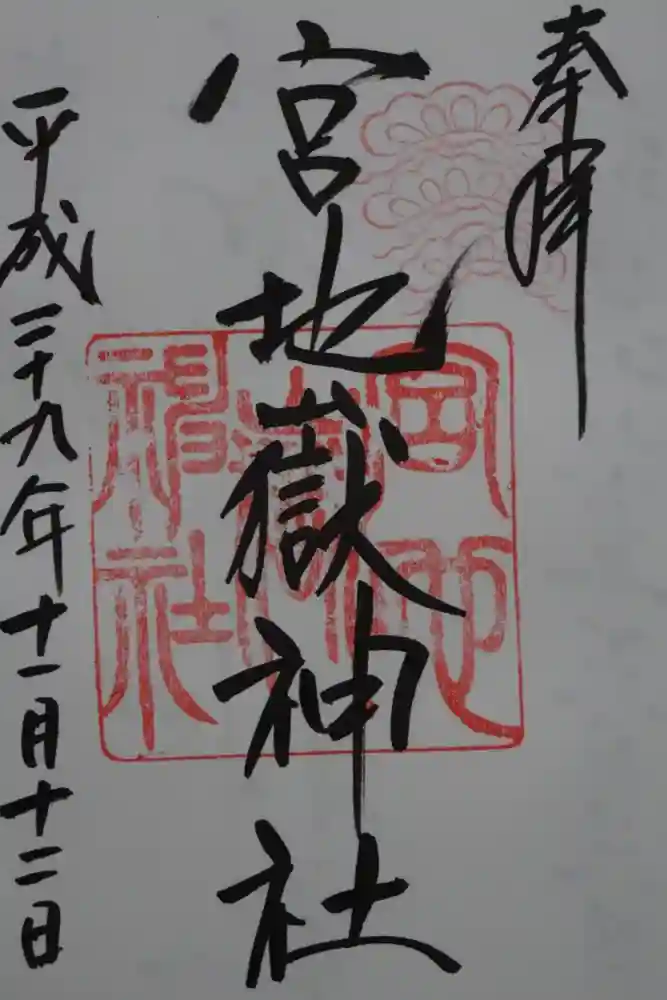 奉拝
宮地嶽神社
平成二十九年十一月十二日
宮地
嶽
神社